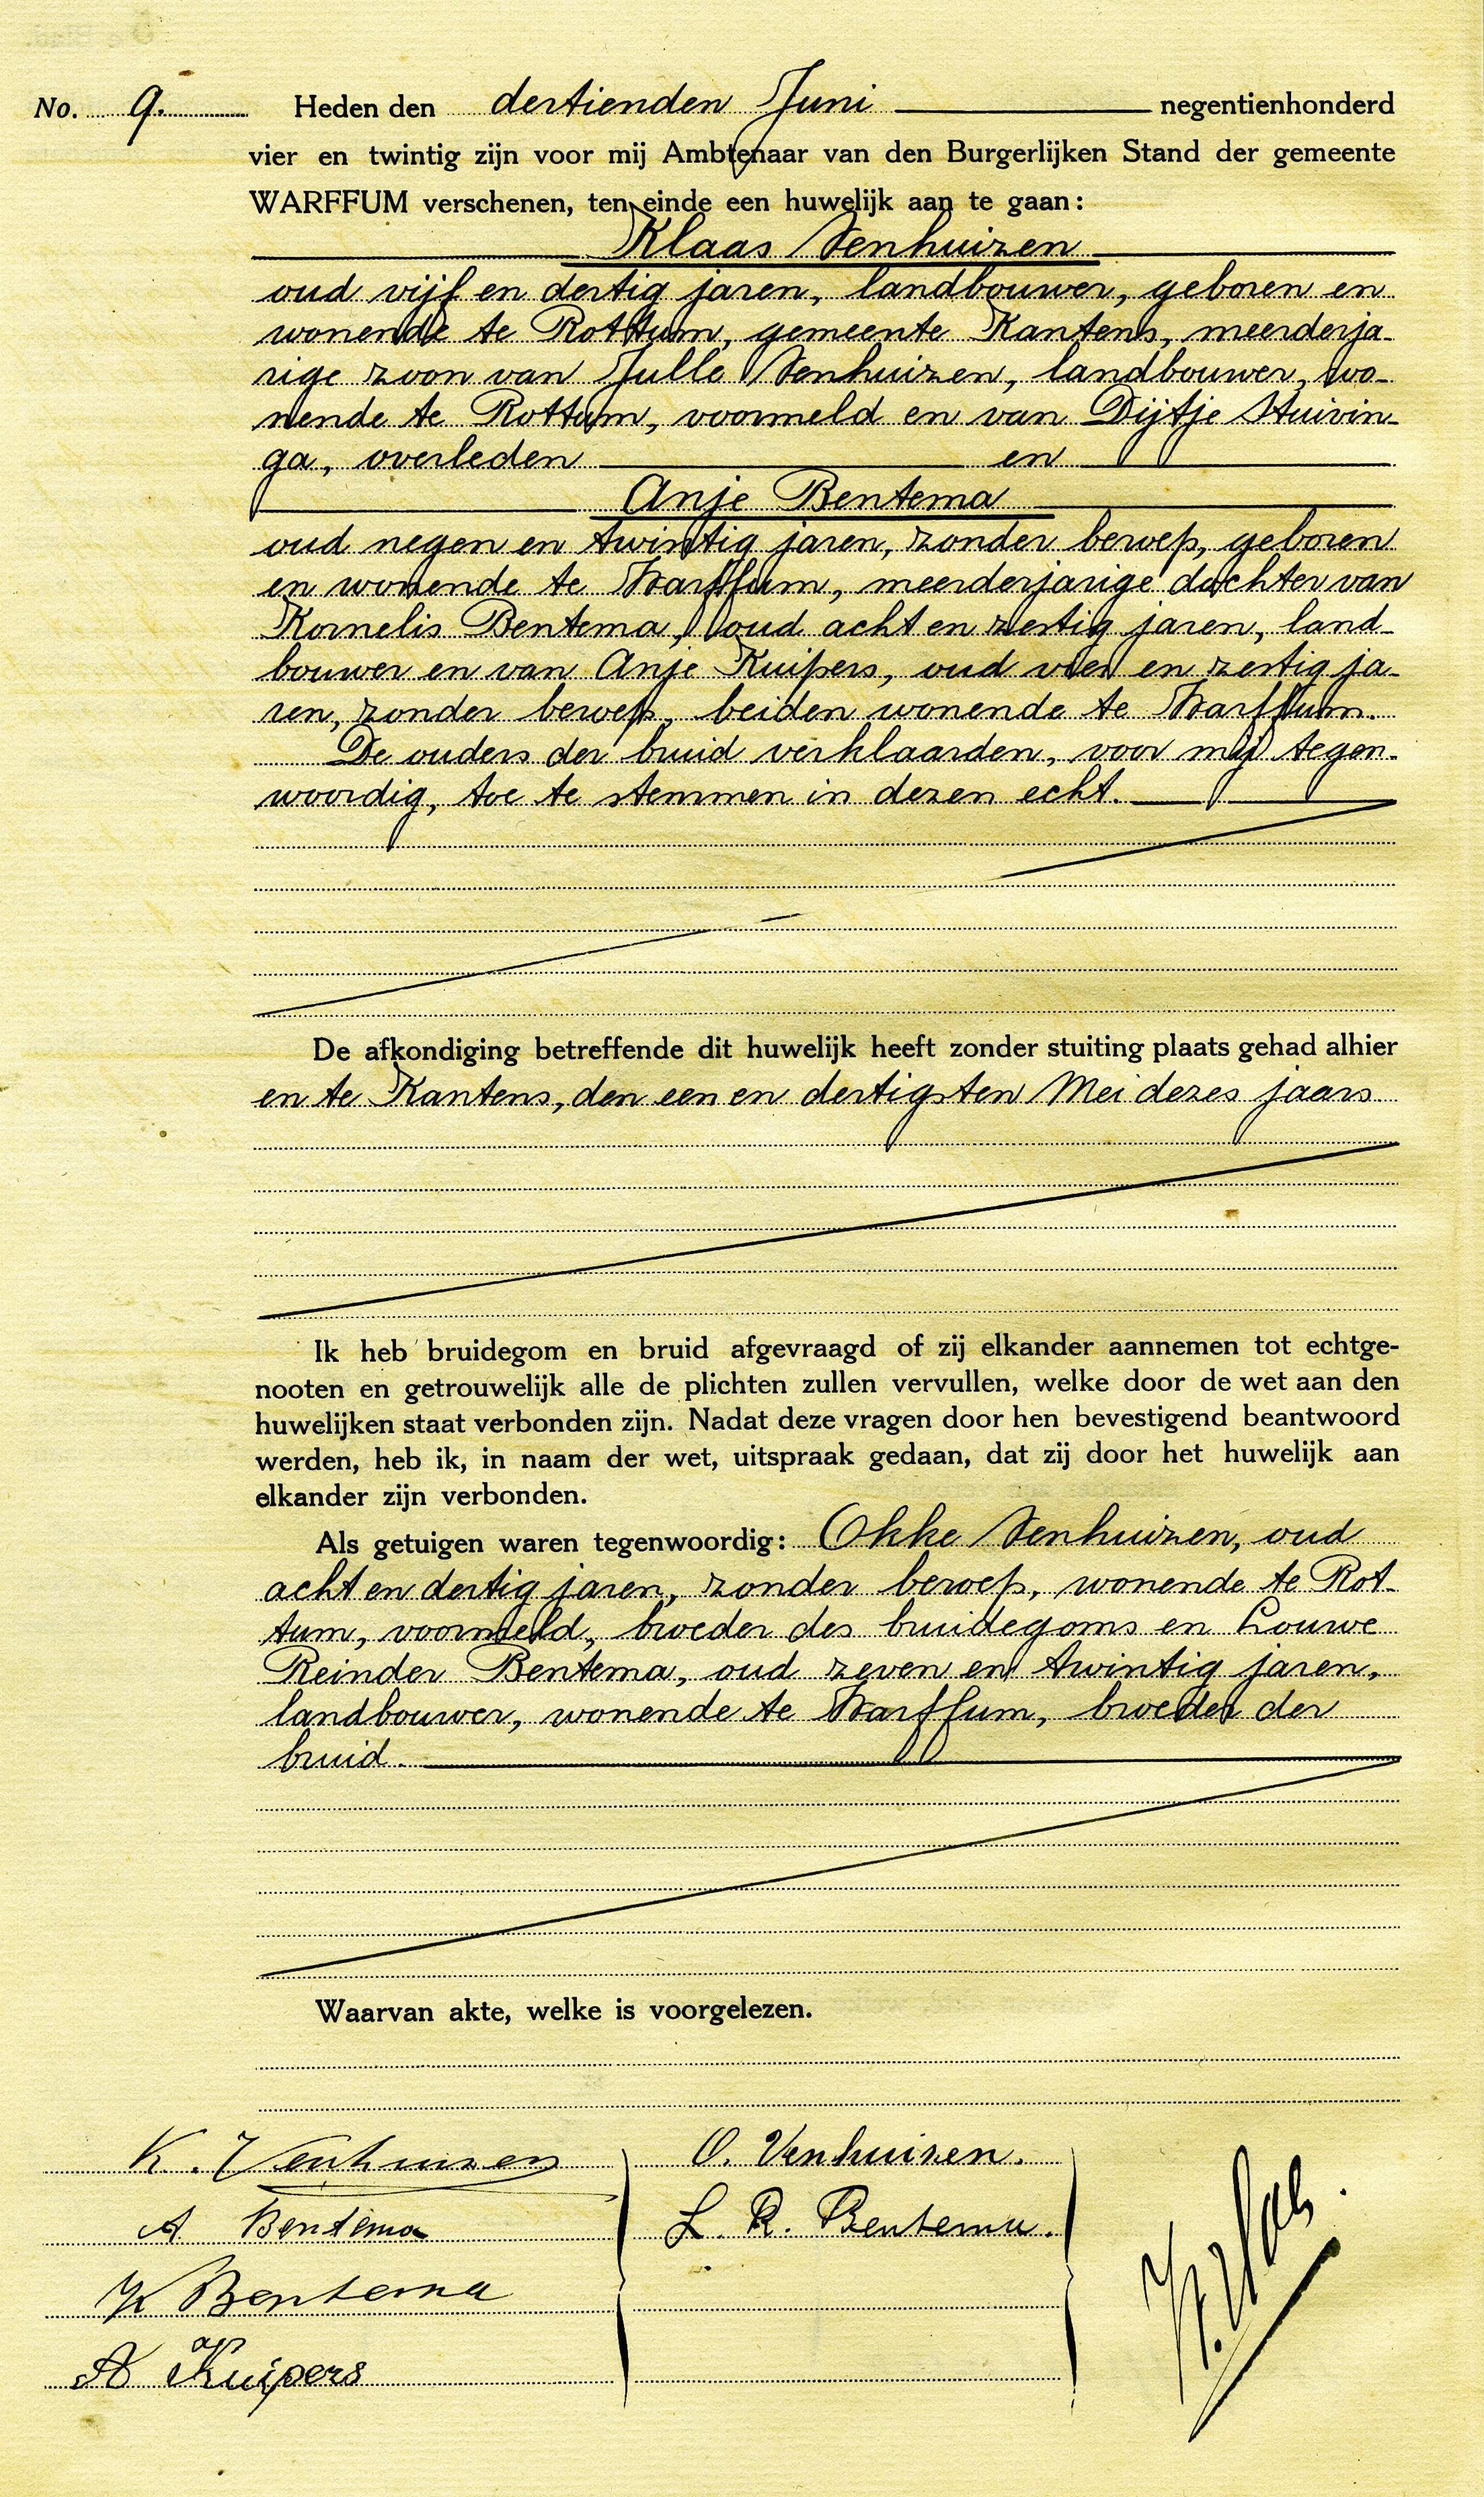 No. 9. Heden den dertienden Juni negentienhonderd
vier en twintig zijn voor mij Ambtenaar van den Burgerlijken Stand der gemeente
WARFFUM verschenen, ten einde een huwelijk aan te gaan:
Klaas Venhuizen
oud vijf en dertig jaren, landbouwer, geboren en
wonende te Rottum, gemeente Kantens, meerderja-
rige zoon van Julle Venhuizen, landbouwer, wo-
nende te Rottum, voormeld en van Dijtje Stuivin-
ga, overleden en
Anje Bentema
oud negen en twintig jaren, zonder beroep, geboren
en wonende te Warffum, meerderjarige dochter van
Kornelis Bentema, oud acht en zestig jaren, land-
bouwer en van Anje Kuipers, oud vier en zestig ja-
ren, zonder beroep, beiden wonende te Warffum.
De ouders der bruid verklaarden, voor mij tegen-
woordig, toe te stemmen in dezen echt.
De afkondiging betreffende dit huwelijk heeft zonder stuiting plaats gehad alhier
en te Kantens, den een en dertigsten Mei dezes jaars
Ik heb bruidegom en bruid afgevraagd of zij elkander aannemen tot echtge-
nooten en getrouwelijk alle de plichten zullen vervullen, welke door de wet aan den
huwelijken staat verbonden zijn. Nadat deze vragen door hen bevestigend beantwoord
werden, heb ik, in naam der wet, uitspraak gedaan, dat zij door het huwelijk aan
elkander zijn verbonden.
Als getuigen waren tegenwoordig: Okke Venhuizen, oud
acht en dertig jaren, zonder beroep, wonende te Rot-
tum, voormeld, broeder des bruidegoms en Louwe
Reinder Bentema, oud zeven en twintig jaren,
landbouwer, wonende te Warffum, broeder der
bruid.
Waarvan akte, welke is voorgelezen.
K. Venhuizen
A. Bentema
K Bentema
A Kuipers
O. Venhuizen.
L. R. Bentema.